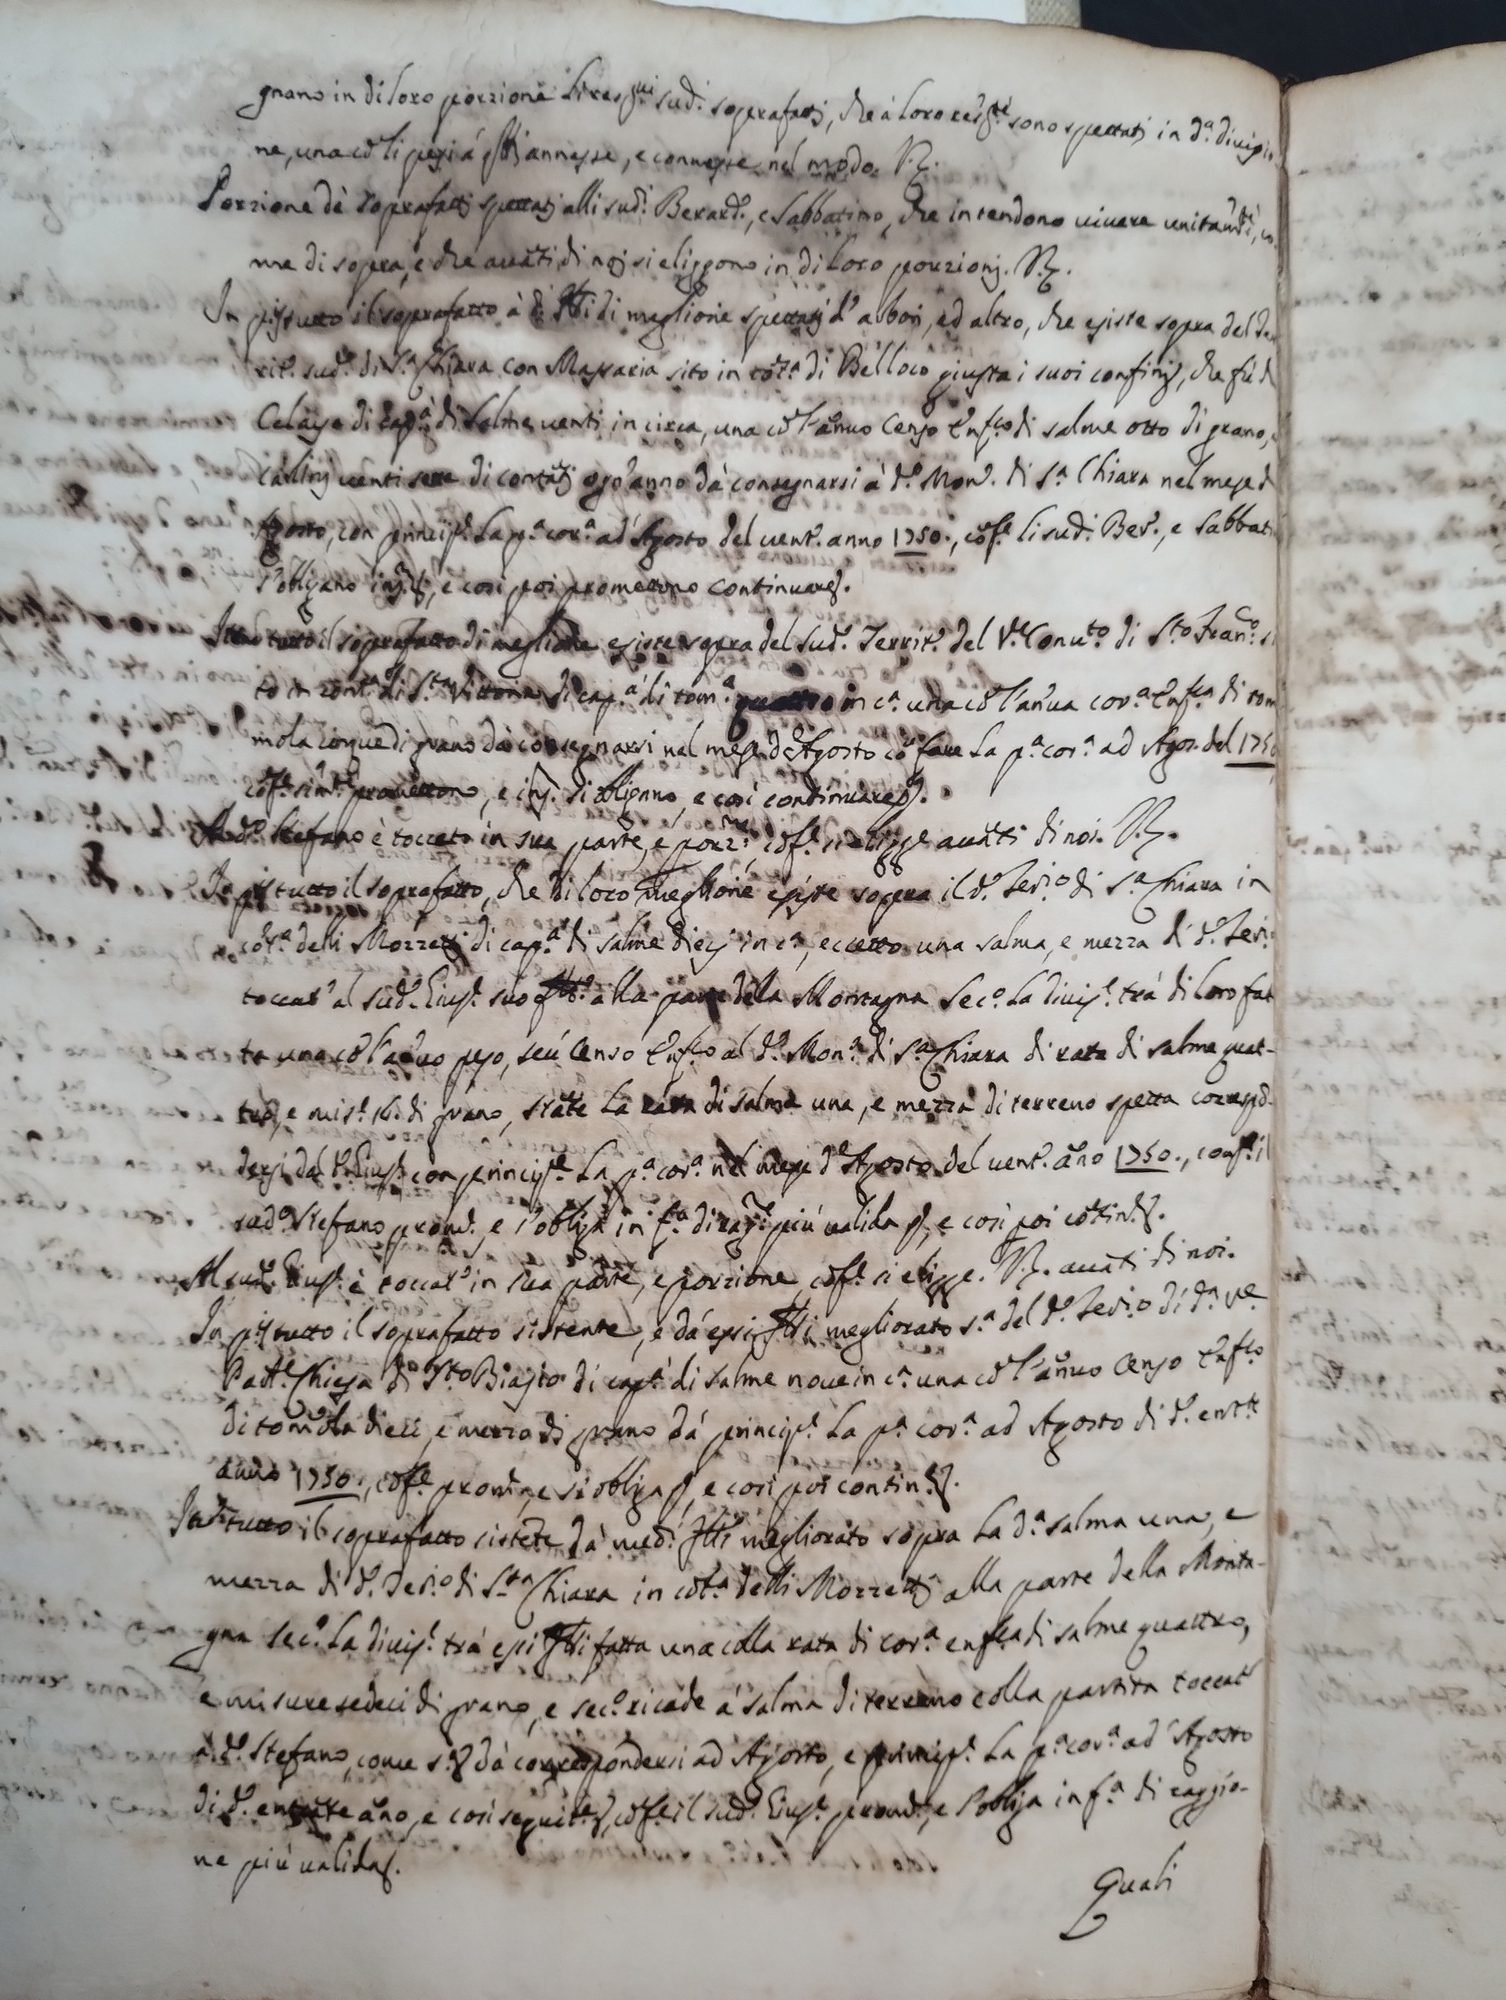 gnano in di loro porzione li sud.i soprafatti, che à loro sono spettati in d.a divisio
ne, una cō li pesi á annesse, e connesse nel modo. V.z.
Porzione dè soprafatti spettati alli sud.i Berard.o, e Sabbatino, che intendono vivere unitam.te, co
me di sopra, e che avāti di noi si eliggono in di loro porzioni. V.z.
In p.is tutto il soprafatto à di meglione spettati d'albori, ed altro, che esiste sopra del Ter
rit.o sud.o di S.a Chiara con Massaria sito in cōt.a di Belloco giusta i suoi confini, che fù d
Calayse di cap.à di salme venti in circa, una cō l'ānuo Censo Enf.co di salme otto di grano, e
carlini venti sette di contāti ogn'anno dà consegnarsi à d.o Mon.o di S.a Chiara nel mese d
Agosto, con princip.e la p.a cor.a ad Agosto del vent.o anno 1750., cōf.e li sud.i Ber.o, e Sabbati
s'obligano, e così poi promettono continuare.
Item tutto il soprafatto di meglione esiste sopra del sud.o Territ.o del V.e Conv.to di S.to Fran.co si
to in cont.a di S.ta Vittoria di cap.à di tom.a quattro in c.a una cō l'ānua cor.a Enf.ca di tom
mola cinque di grano dà consegnarsi nel mese d'Agosto cō fare la p.a cor.a ad Agos. del 1750
cōf.e sim.te promettono, e si obligano, e così continuare.
A d.o Stefano è toccato in sua parte, e porz.e, cōf.e si eligge avāti di noi. V.z.
In p.is tutto il soprafatto, che di loro meglione esiste sopra il d.o Ter.o di S.a Chiara in
cōt.a delli Mozzetti di cap.à di salme dieci in c.a, eccetto una salma, e mezza di d.o Ter.o
toccat.o al sud.o Gius.e suo alla parte della Montagna sec.o la divis.e trà di loro fat
ta una cō l'ānuo peso, seú Censo Enf.co al d.o Mon.o di S.a Chiara di rata di salme quat-
tro, e mis.e 16. di grano, stāte la rata di salma una, e mezza di terreno spetta corrispō
dersi dal d.o Gius.e con princip.e la p.a cor.a nel mese d'Agosto del vent.o āno 1750., conf.e il
sud.o Stefano prom.e, e s'obliga in f.a di rag.e più valida, e così poi cōtin.e.
Al sud.o Gius.e è toccat.o in sua parte, e porzione, cōf.e si eligge. V.z. avāti di noi.
In p.is tutto il soprafatto sistente, e dà essi megliorato s.a del d.o Ter.o di d.a
Chiesa di S.to Biasio di cap.à di salme nove in c.a una cō l'ānuo Censo Enf.co
di tomola dieci, e mezzo di grano dá princip.e la p.a cor.a ad Agosto di d.o ent.te
anno 1750., cōf.e promette, e si obliga, e così poi contin.e.
It. tutto il soprafatto sistēte dà med.i megliorato sopra la d.a salma una, e
mezza di d.o Ter.o di S.ta Chiara in cōt.a delli Mozzetti alla parte della Monta-
gna sec.o la divis.e trà essi fatta una colla rata di cor.a enf.ca di salme quattro,
e misure sedeci di grano, e sec.o ricade á salma di terreno colla partita toccat.a
à d.o Stefano, come s.a dà correspondersi ad Agosto, e princip.e la p.a cor.a ad Agosto
di d.o entrāte āno, e così seguit.e, cōf.e il sud.o Gius.e prom.e, e s'obliga in f.a di raggio-
ne più valida.
Quali